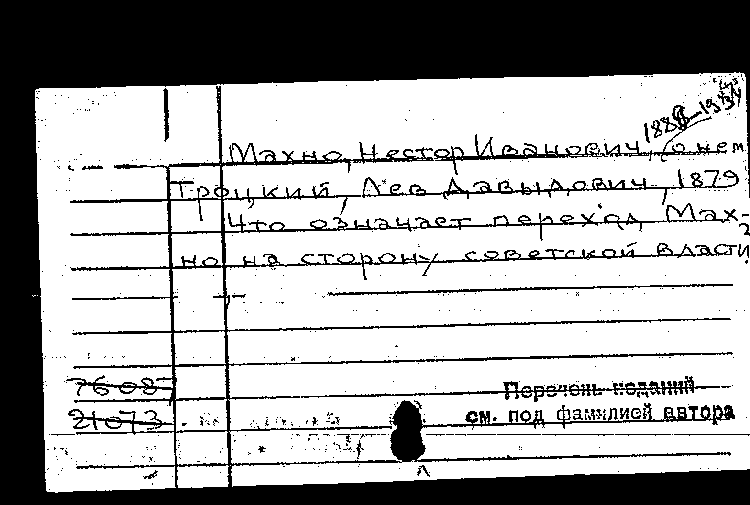 1888-1934
Махно, Нестор Иванович, о нем
Троцкий, Лев Давыдович, 1879
Что означает переход Мах-
но на сторону советской власти?
76087
21073
Перечень изданий
см. под фамилией автора